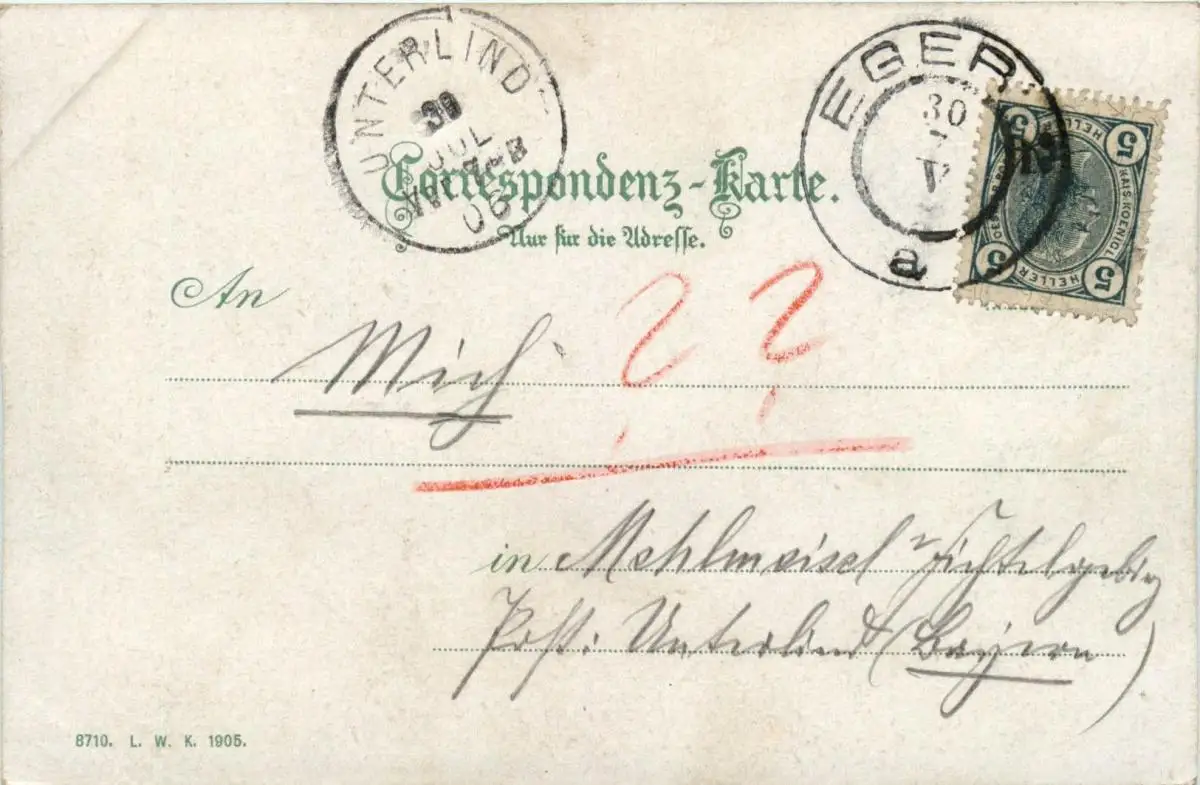 UNTERLIND
30
JUL
06
EGER
30
a
5 HELLER 5
KAIS. KOENIGL.
5 HELLER 5
Correspondenz-Karte.
Nur für die Adresse.
An
Mich ? ?
in Mehlmeisel Fichtelgebirg
Post: Unterlind (Bayern)
8710. L. W. K. 1905.